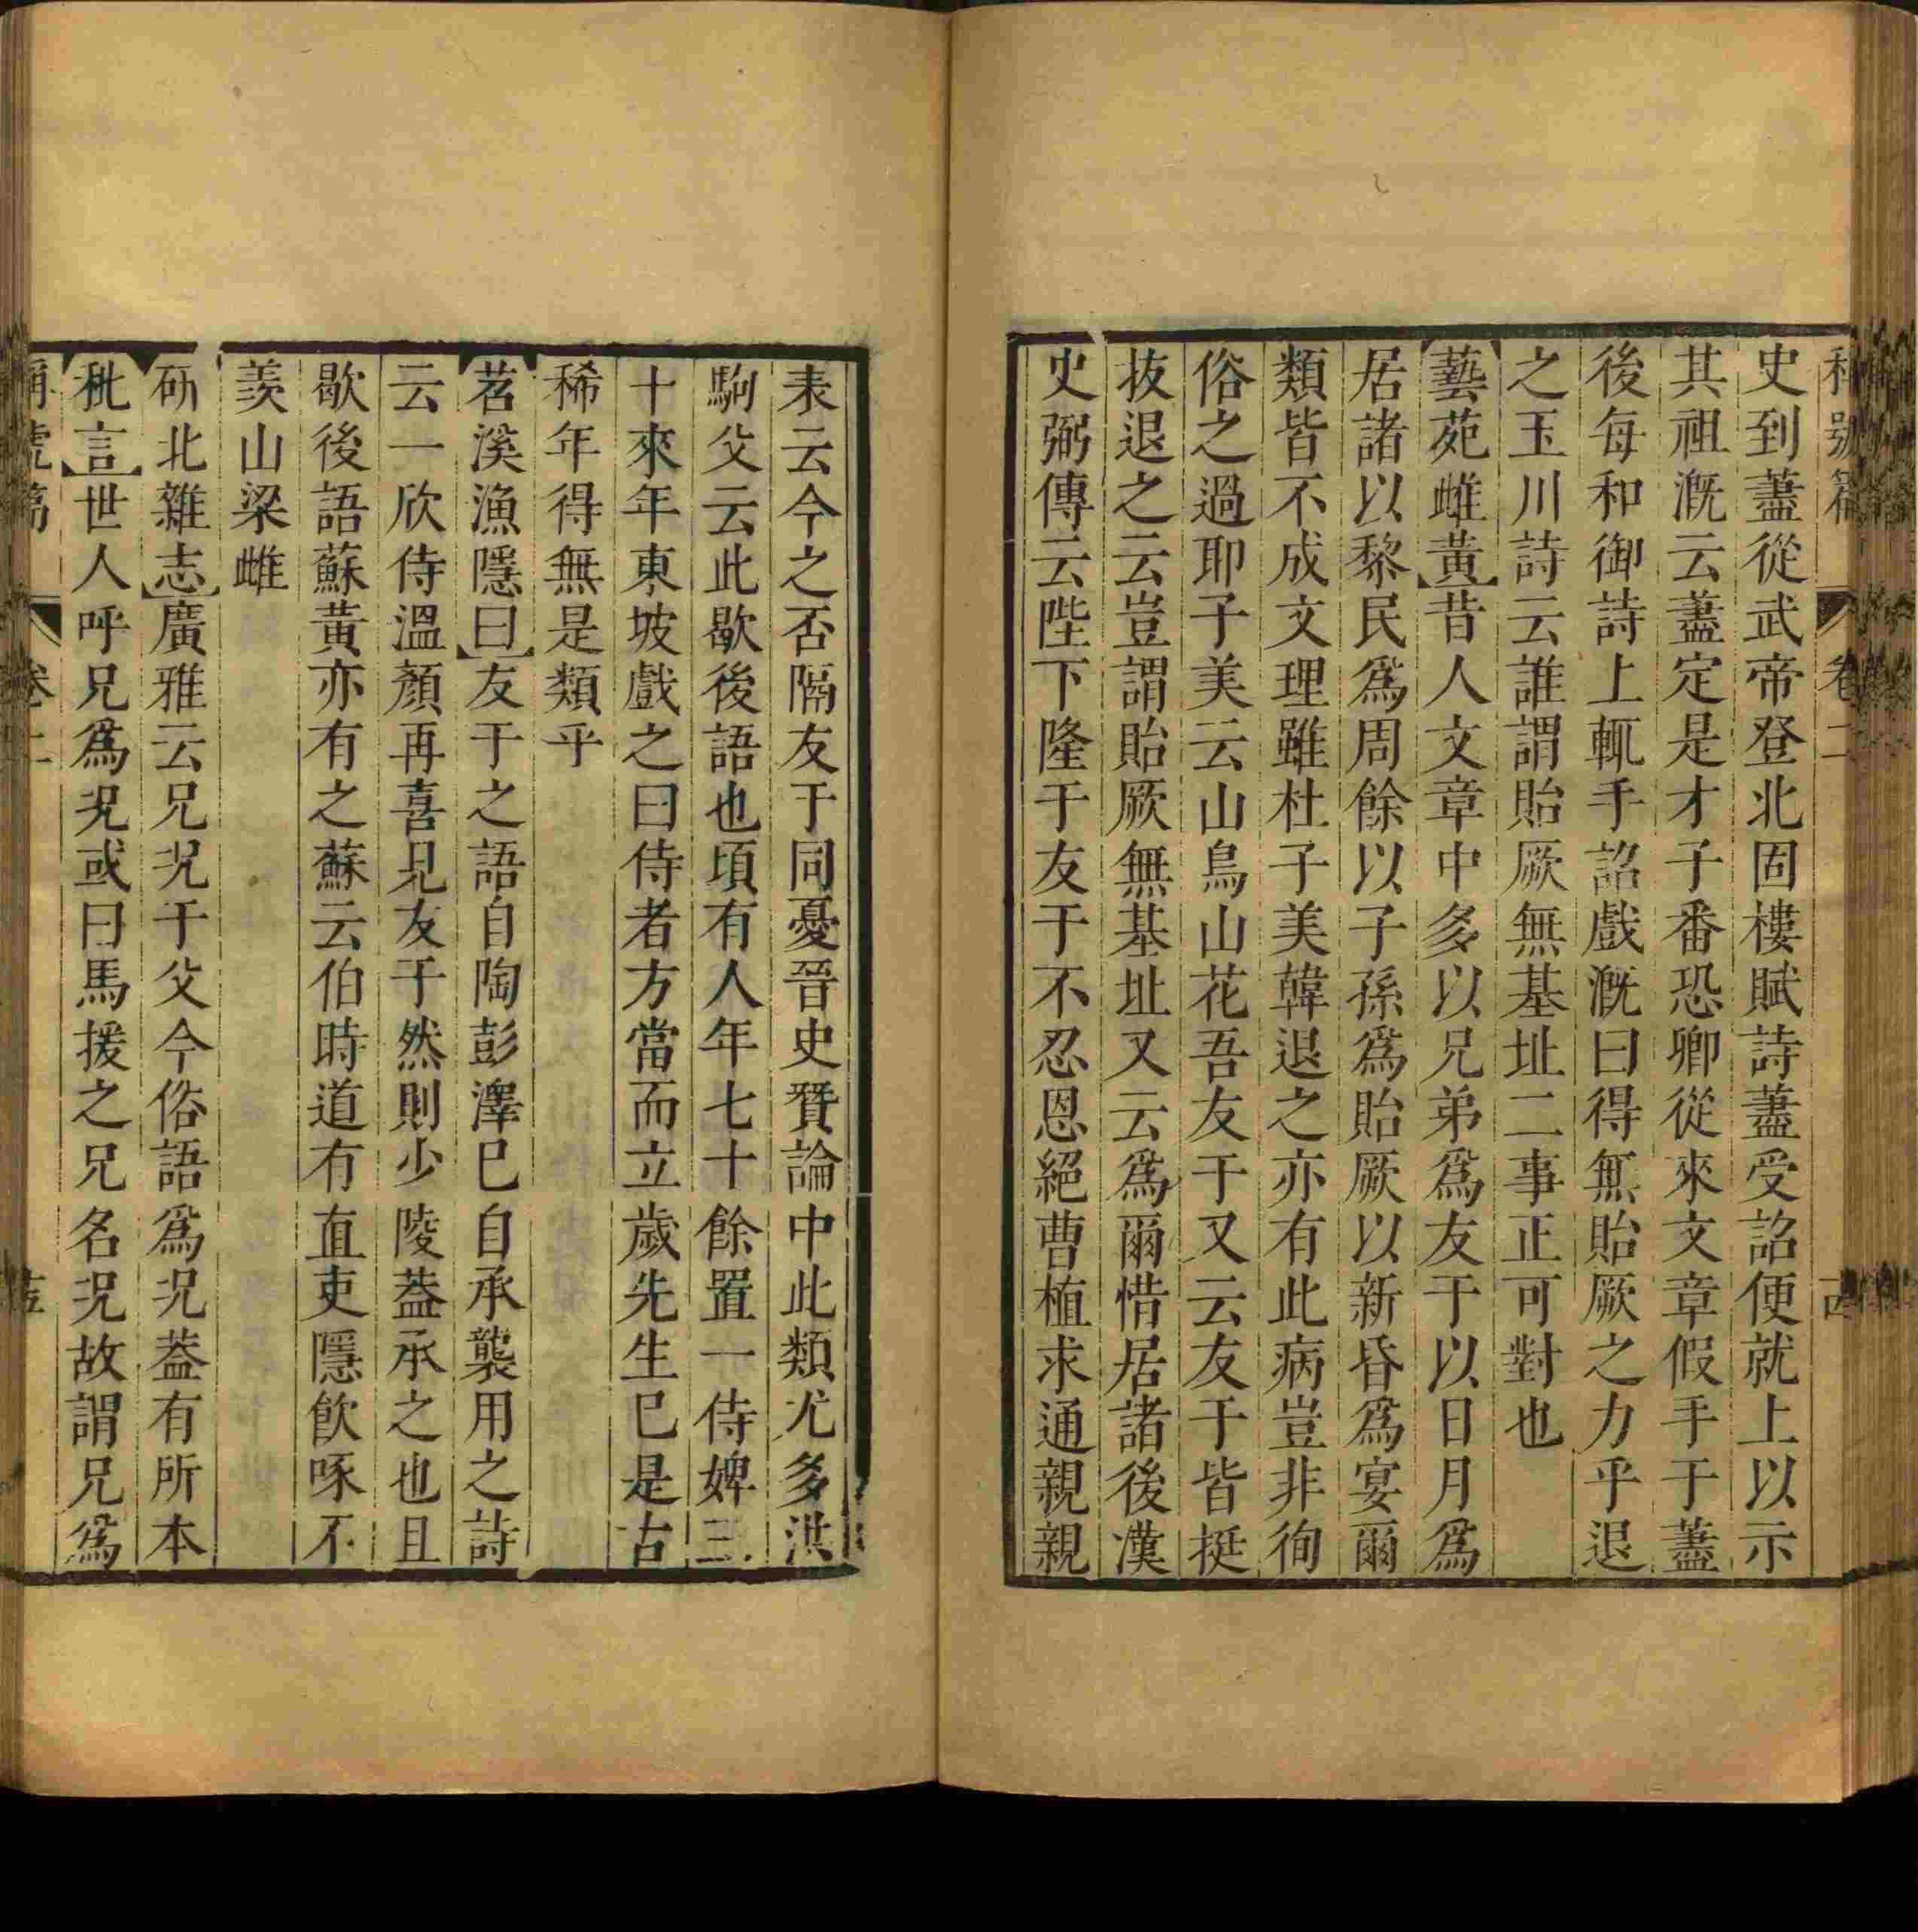 稱號篇 卷二
史到藎從武帝登北固樓賦詩藎受詔便就上以示
其祖漑云藎定是才子番恐卿從來文章假手于藎
後每和御詩上輒手詔戲漑曰得無貽厥之力乎退
之玉川詩云誰謂貽厥無基址二事正可對也
藝苑雌黃昔人文章中多以兄弟爲友于以日月爲
居諸以黎民爲周餘以子孫爲貽厥以新昏爲宴爾
類皆不成文理雖杜子美韓退之亦有此病豈非徇
俗之過耶子美云山鳥山花吾友于又云友于皆挺
拔退之云豈謂貽厥無基址又云爲爾惜居諸後漢
史弼傳云陛下隆于友于不忍恩絕曹植求通親親
表云今之否隔友于同憂晉史贊論中此類尤多洪
駒父云此歇後語也頃有人年七十餘置一侍婢三
十來年東坡戲之曰侍者方當而立歲先生巳是古
稀年得無是類乎
苕溪漁隱曰友于之語自陶彭澤巳自承襲用之詩
云一欣侍溫顏再喜見友于然則少陵葢承之也且
歇後語蘇黃亦有之蘇云伯時道有直吏隱飮啄不
羨山梁雌
硏北雜志廣雅云兄况于父今俗語爲况葢有所本
秕言世人呼兄爲况或曰馬援之兄名况故謂兄爲
卷二